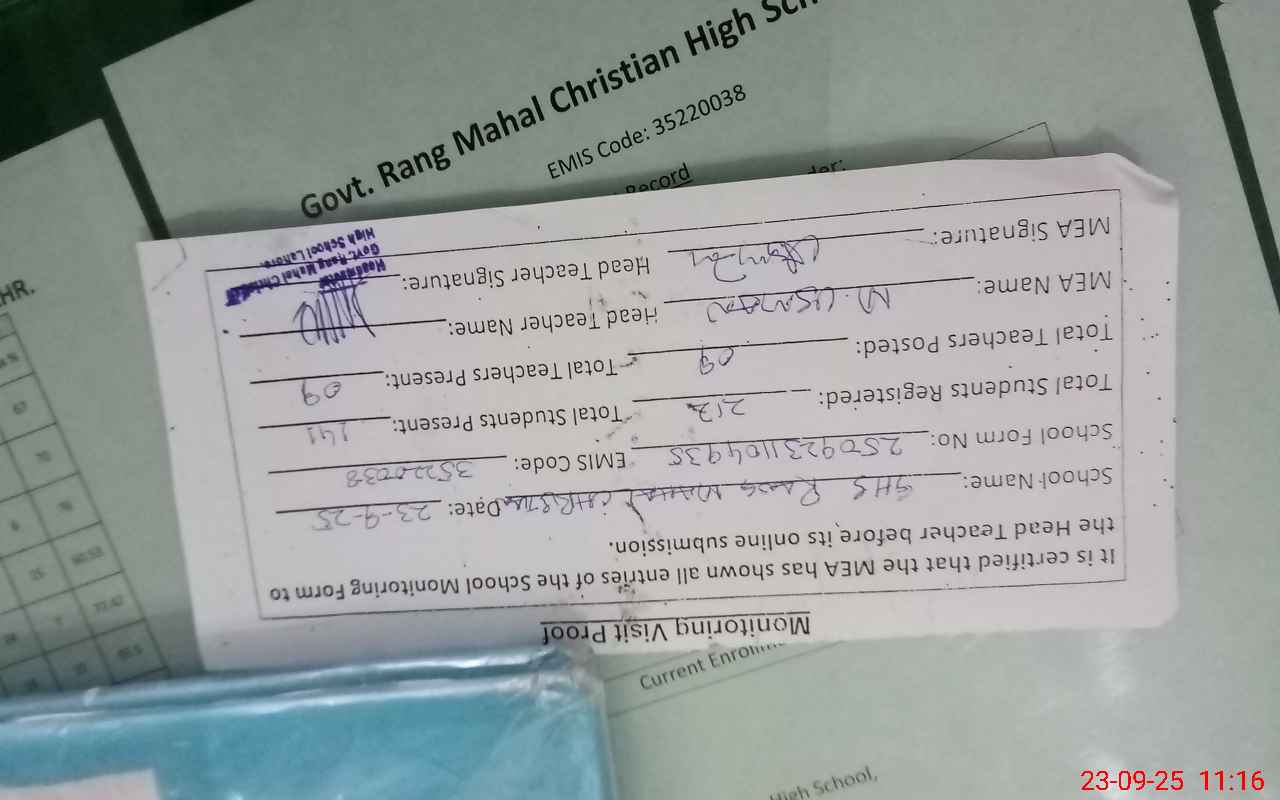 Govt. Rang Mahal Christian High
EMIS Code: 35220038
Record
Monitoring Visit Proof
It is certified that the MEA has shown all entries of the School Monitoring Form to
the Head Teacher before its online submission.
School Name: GHS RANG MAHAL CHRISTIAN Date: 23-9-25
School Form No: 2509231104935 EMIS Code: 35220038
Total Students Registered: 212 Total Students Present: 141
Total Teachers Posted: 09 Total Teachers Present: 09
MEA Name: M. USMAN Head Teacher Name:
MEA Signature: Head Teacher Signature:
Govt. Rang Mahal
High School Lahore
HR.
Current
High School,
23-09-25 11:16